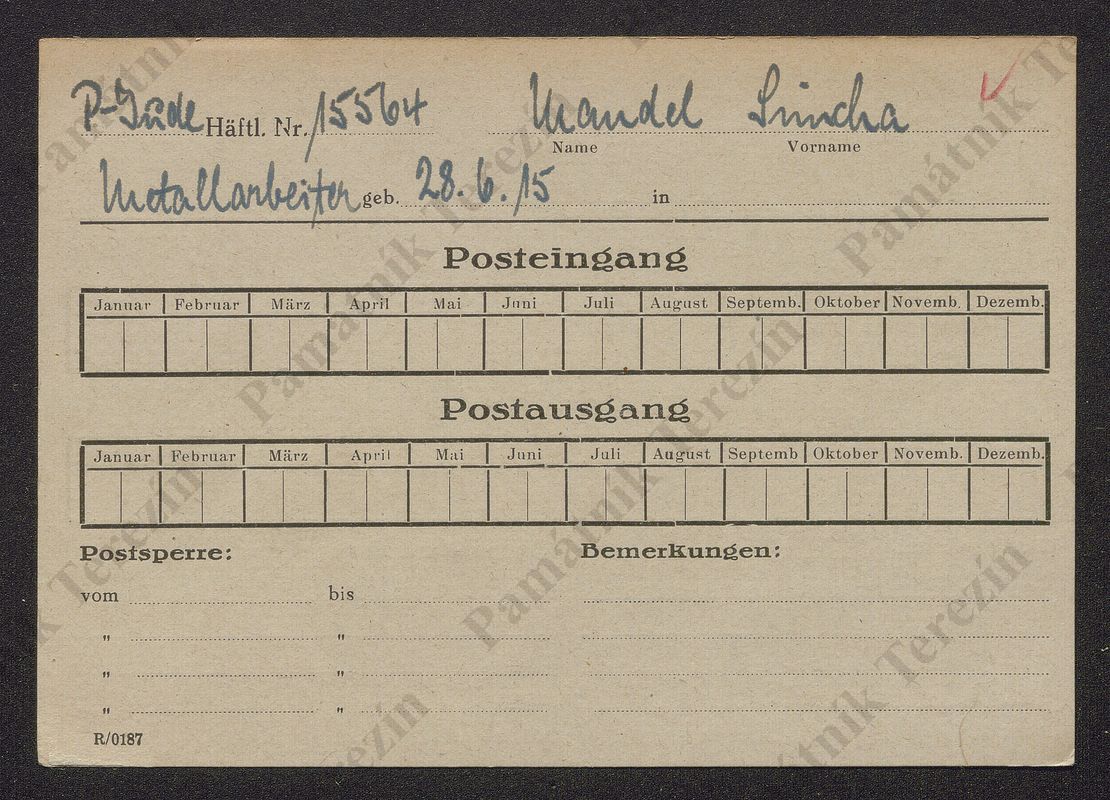 P-Jude Häftl. Nr. 15564 Mandel Simcha
Name Vorname
Metallarbeiter geb. 28.6.15 in
Posteingang
Januar Februar März April Mai Juni Juli August Septemb. Oktober Novemb. Dezemb.
Postausgang
Januar Februar März April Mai Juni Juli August Septemb Oktober Novemb. Dezemb.
Postsperre: Bemerkungen:
vom bis
" "
" "
" "
R/0187
Památník Terezín